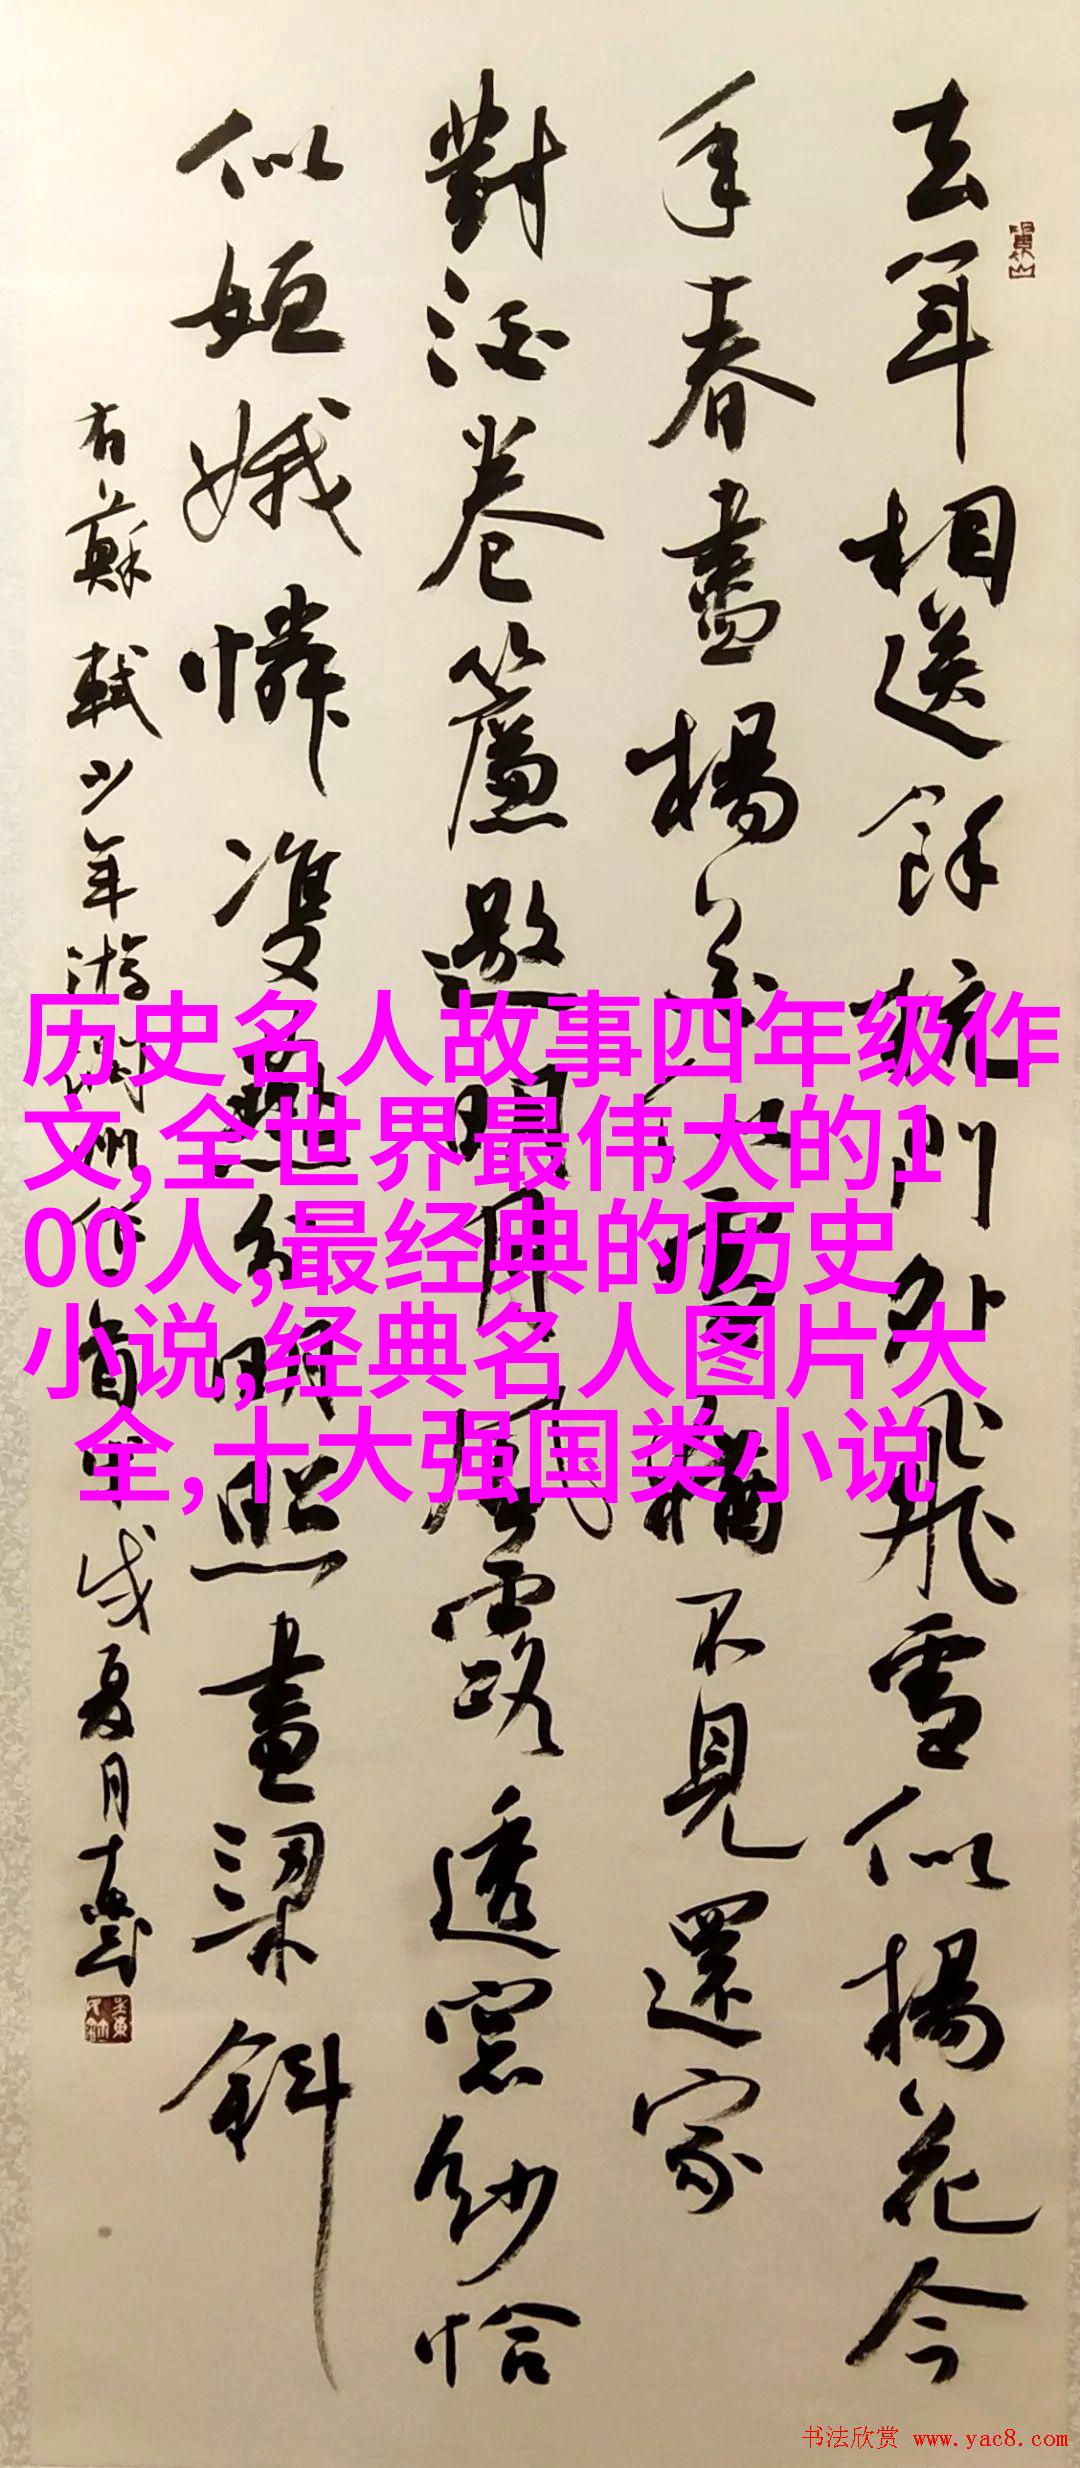 去年相送餘杭門外飛雪似楊花今
年春盡楊花似雪猶不見還家
對酒卷簾邀明月風露透窓紗恰
似姮娥憐雙燕分明照畫梁斜
右蘇軾少年游潤州作首甲戌夏月
历史名人故事四年级作
文,全世界最伟大的1
00人,最经典的历史
小说,经典名人图片大
全,十大强国类小说
书法欣赏 www.yac8.com